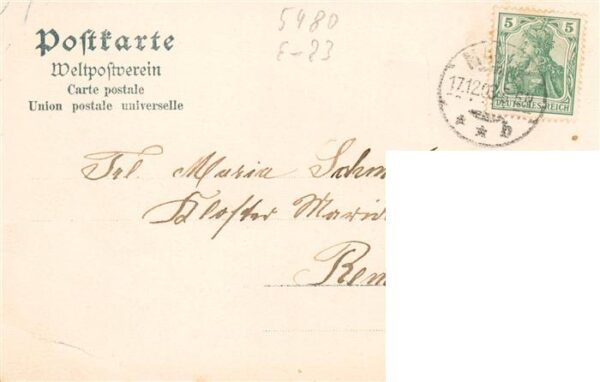 Postkarte
Weltpostverein
Carte postale
Union postale universelle
5480
E-23
5 5
DEUTSCHES REICH
17.12.03
* * b
Frl. Maria Schm
Kloster Marie
Rem